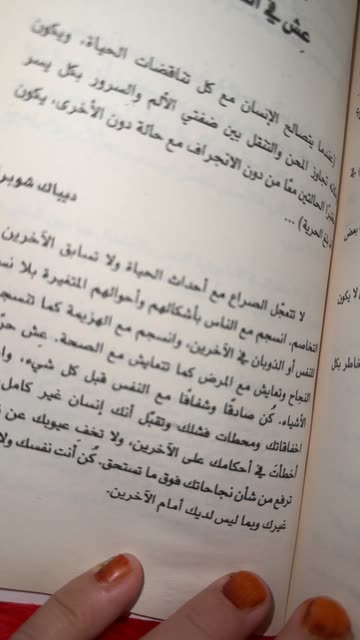 عِش في
(عندما يتصالح الإنسان مع كل تناقضات الحياة، ويكون
تجاوز المحن والتنقل بين ضفتي الألم والسرور بكل يسر
الحالتين معًا من دون الانجراف مع حالة دون الأخرى، يكون
الحرية) ...
ديباك شوبرا
لا تتعجّل الصراع مع أحداث الحياة ولا تسابق الآخرين
التخاصم. انسجم مع الناس بأشكالهم وأحوالهم المتغيرة بلا
النفس أو الذوبان في الآخرين، وانسجم مع الهزيمة كما تنسجم
النجاح وتعايش مع المرض كما تتعايش مع الصحة. عِش
الأشياء. كُن صادقًا وشفافًا مع النفس قبل كل شيء،
اخفاقاتك ومحطات فشلك وتقبّل أنك إنسان غير كامل
أخطأت في أحكامك على الآخرين، ولا تخفِ عيوبك عن
ترفع من شأن نجاحاتك فوق ما تستحق. كُن أنت نفسك ولا
غيرك وبما ليس لديك أمام الآخرين.
بعض
لا يكون
مخاطر بكل